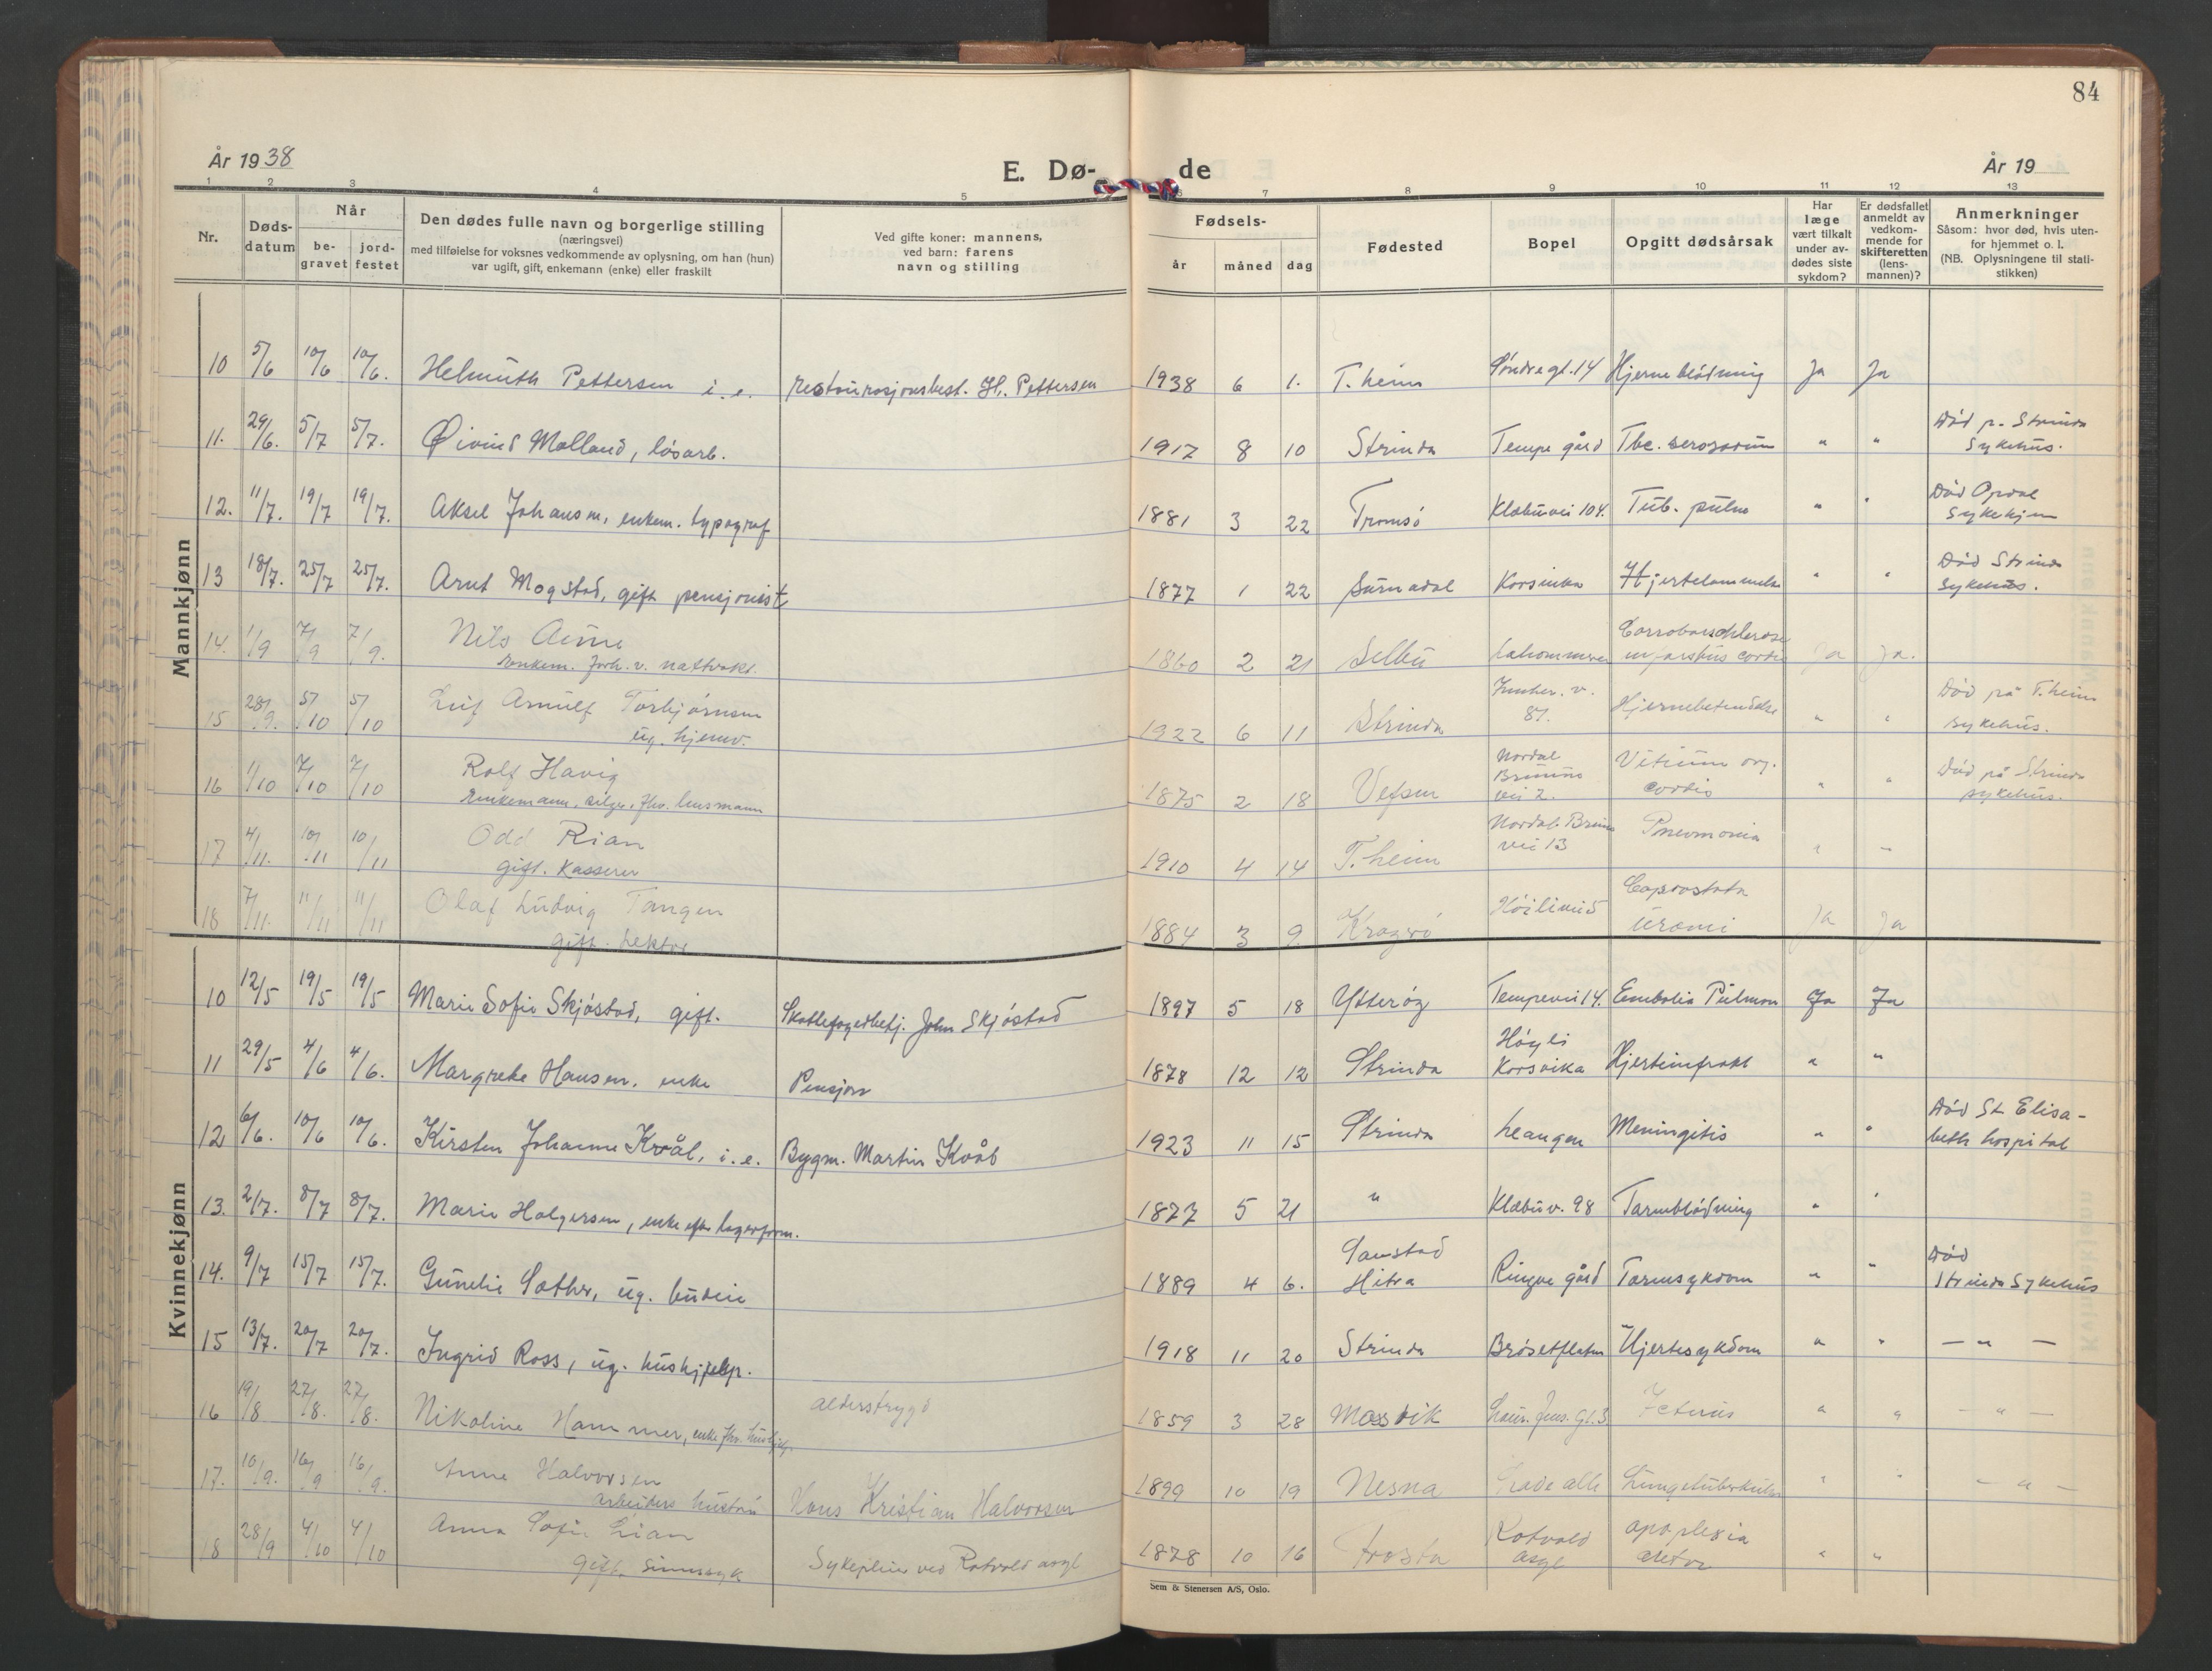 84
År 1938
E. Dø-
de
År 19
1 2 3 4 5 6 7 8 9 10 11 12 13
Nr.
Døds-
datum
Når
be-
gravet
jord-
festet
Den dødes fulle navn og borgerlige stilling
(næringsvei)
med tilføielse for voksnes vedkommende av oplysning, om han (hun)
var ugift, gift, enkemann (enke) eller fraskilt
Ved gifte koner: mannens,
ved barn: farens
navn og stilling
Fødsels-
år måned dag
Fødested
Bopel
Opgitt dødsårsak
Har
læge
vært tilkalt
under av-
dødes siste
sykdom?
Er dødsfallet
anmeldt av
vedkom-
mende for
skifteretten
(lens-
mannen)?
Anmerkninger
Såsom: hvor død, hvis uten-
for hjemmet o. l.
(NB. Oplysningene til stati-
stikken)
Mannkjønn
10 5/6 10/6 10/6. Helmuth Pettersen i. e. restaurasjonsbest. H. Pettersen 1938 6 1. T.heim Søndregt. 14 Hjerneblødning Ja Ja
11. 29/6. 5/7 5/7. Øivind Molland, løsarb. 1917 8 10 Strinda Tempe gård Tbc. serosarum " " Død p. Strinda
Sykehus.
12. 11/7. 19/7 19/7. Aksel Johansen, enkem. typograf 1881 3 22 Tromsø Klæbuvei 104. Tub. pulm " " Død Opdal
Sykehjem
13 18/7. 25/7 25/7. Arnt Mogstad, gift pensjonist 1877 1 22 Surnadal Korsvika Hjertelammelse " " Død Strinda
Sykehus.
14. 1/9 7/9 7/9. Nils Aune
Enkem. forh. v. nattvakt. 1860 2 21 Selbu cordis Ja Ja.
15 28/9. 5/10 5/10 Leif Arnulf Torbjørnsen
ug. hjemv. 1922 6 11 Strinda v.
87. Hjernebetendelse " " Død på T.heim
sykehus.
16 1/10 7/10 7/10 Rolf Havig
Enkemann, selger, fhv. lensmann 1875 2 18 Vefsen Nordal
Bruuns
vei 2. Vitium org.
cordis " " Død på Strinda
sykehus.
17 4/11. 10/11 10/11 Odd Rian
gift. Kasserer 1910 4 14 T.heim Nordal Bruns
vei 13 Pneumonia " "
18 7/11. 11/11 11/11 Olaf Ludvig Tangen
gift. Lektor 1884 3 9 Kragerø Høiliveien uræmi Ja Ja
Kvinnekjønn
10 12/5 19/5 19/5 Marie Sofie Skjøstad, gift. Skattefogedbetj. John Skjøstad 1897 5 18 Ytterøy Tempevei 14. Embolia Pulmon Ja Ja
11 29/5 4/6 4/6. Margrete Hansen, enke Pensjon 1878 12 12 Strinda Høyli
Korsvika Hjerteinfrakt " "
12 6/6. 10/6 10/6. Kirsten Johanne Kvål, i. e. Bygm. Martin Kvål 1923 11 15 Strinda Leangen Meningitis " " Død St Elisa-
beth hospital
13. 2/7. 8/7 8/7. Marie Holgersen, enke efter lagerform. 1877 5 21 " Klæbuv. 98 Tarmblødning " "
14. 9/7 15/7 15/7. Gunelie Sæther, ug. budeie 1889 4 6. Sanstad
Hitra Ringve gård Tarmsykdom " " Død
Strinda Sykehus
15 13/7. 20/7 20/7. Ingrid Ross, ug. hushjelp. 1918 11 20 Strinda Brøsetflaten Hjertesykdom " " — " —
16 19/8 27/8. 27/8. Nikoline Hammer, enke fhv. hushjelp. alderstrygd 1859 3 28 Mosvik Laur. Jens. gt. 3 Icterus " " — " —
17. 10/9. 16/9 16/9. Anne Halvorsen
arbeiders hustru Hans Kristian Halvorsen 1899 10 19 Nesna Lade allé Lungetuberkulose " " — " —
18 28/9 4/10 4/10 Anna Sofie Lian
gift. sinnssyk Sykepleier ved Rotvold asyl 1878 10 16 Frosta Rotvold
asyl apoplexia " "
Sem & Stenersen A/S, Oslo.